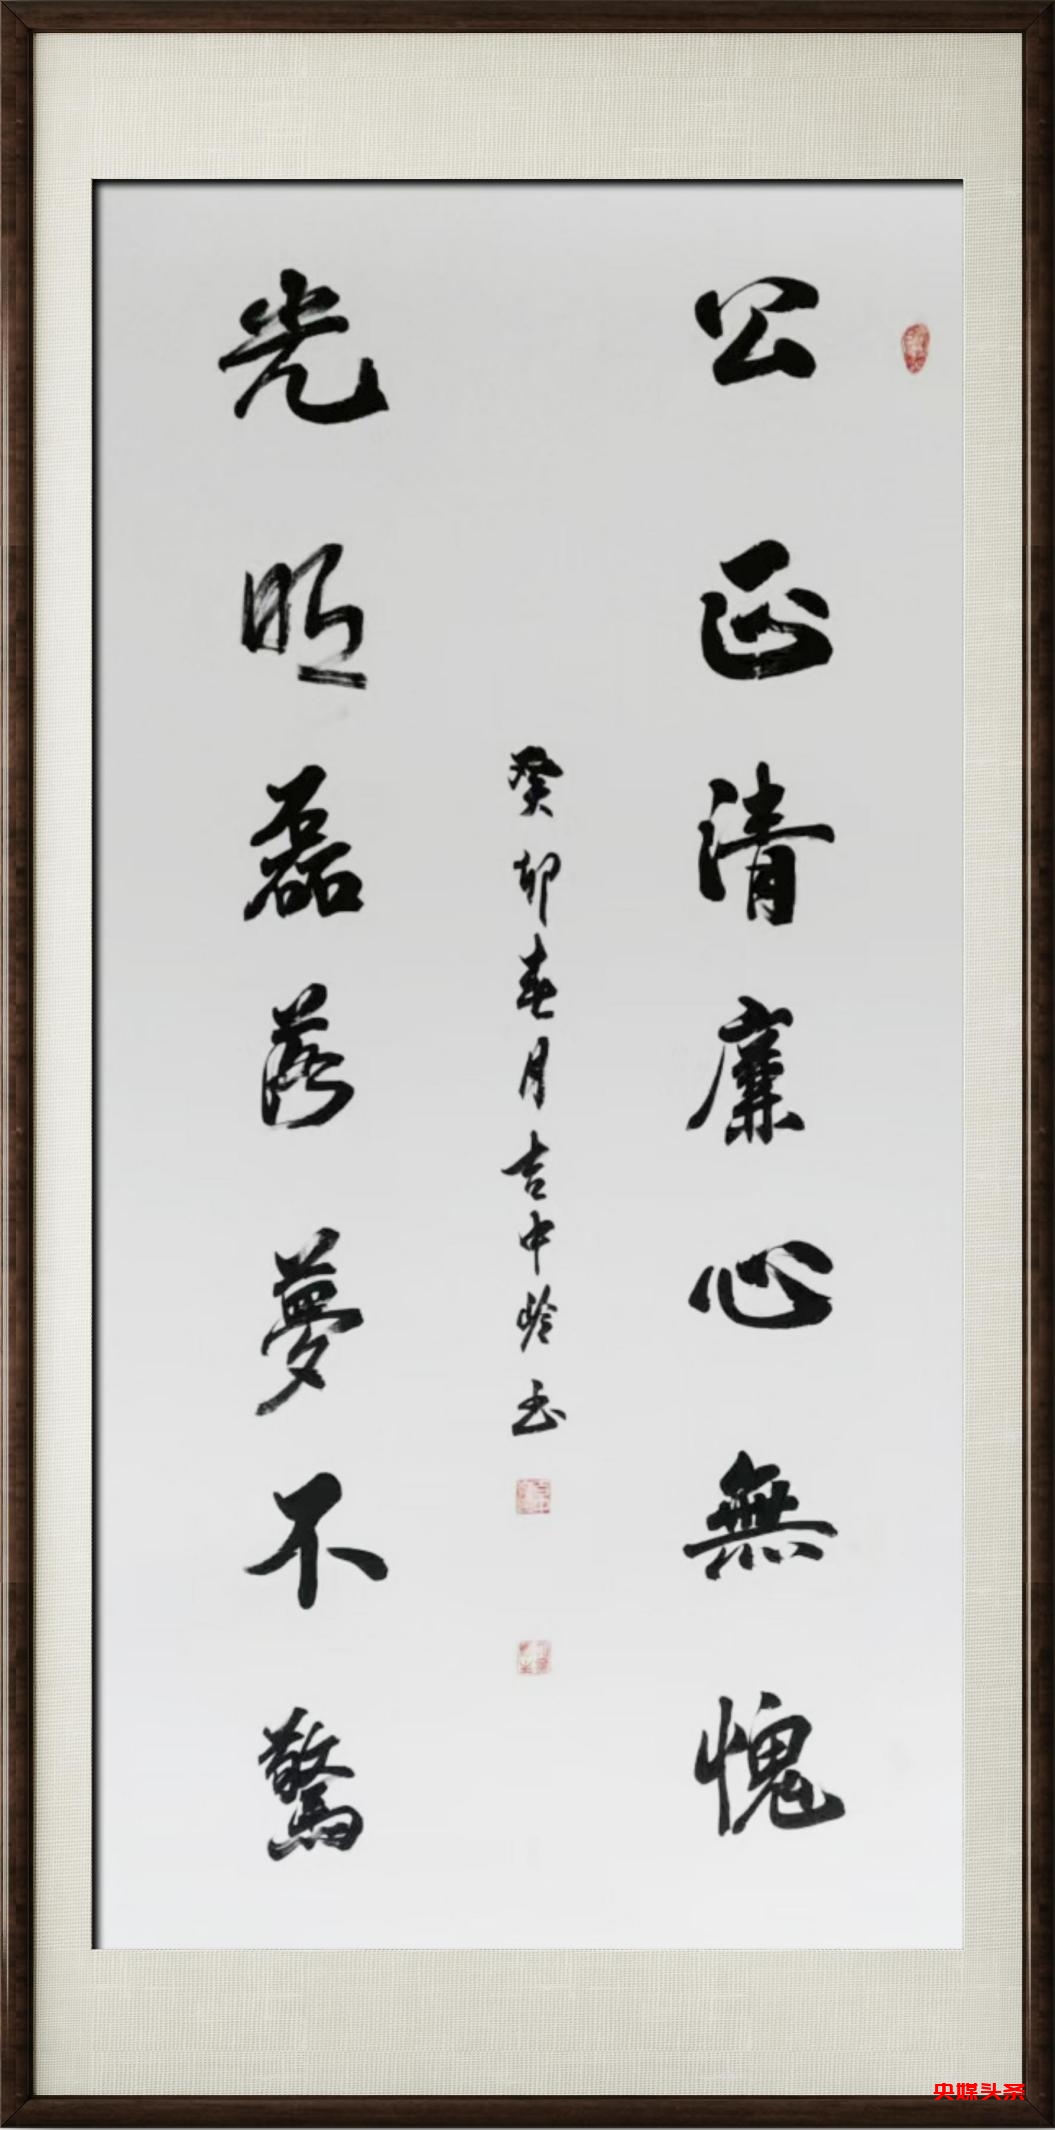 公正清廉心無愧
光明磊落夢不驚
癸卯春月吉中岭书
央媒头条